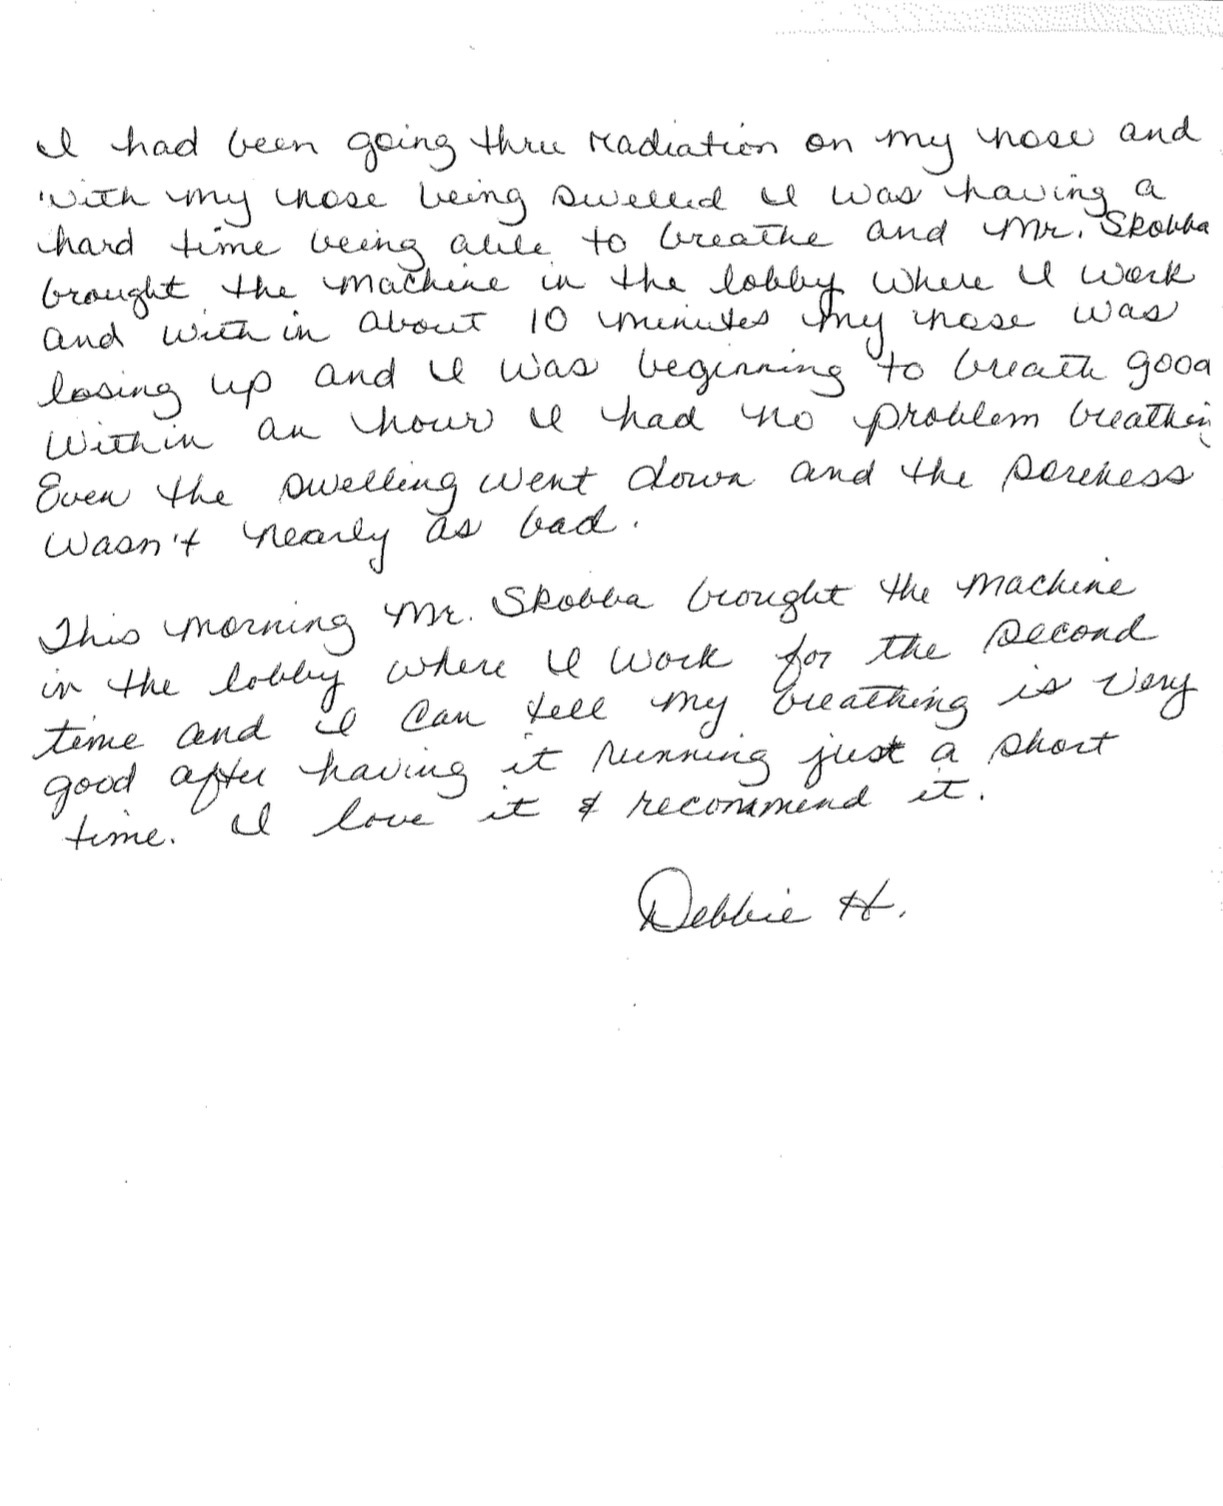 I had been going thru radiation on my nose and
with my nose being swelled I was having a
hard time being able to breathe and Mr. Skobba
brought the machine in the lobby where I work
and within about 10 minutes my nose was
losing up and I was beginning to breath good
Within an hour I had no problem breathin
Even the swelling went down and the soreness
wasn't nearly as bad.
This morning Mr. Skobba brought the machine
in the lobby where I work for the second
time and I can tell my breathing is very
good after having it running just a short
time. I love it & recommend it.
Debbie H.